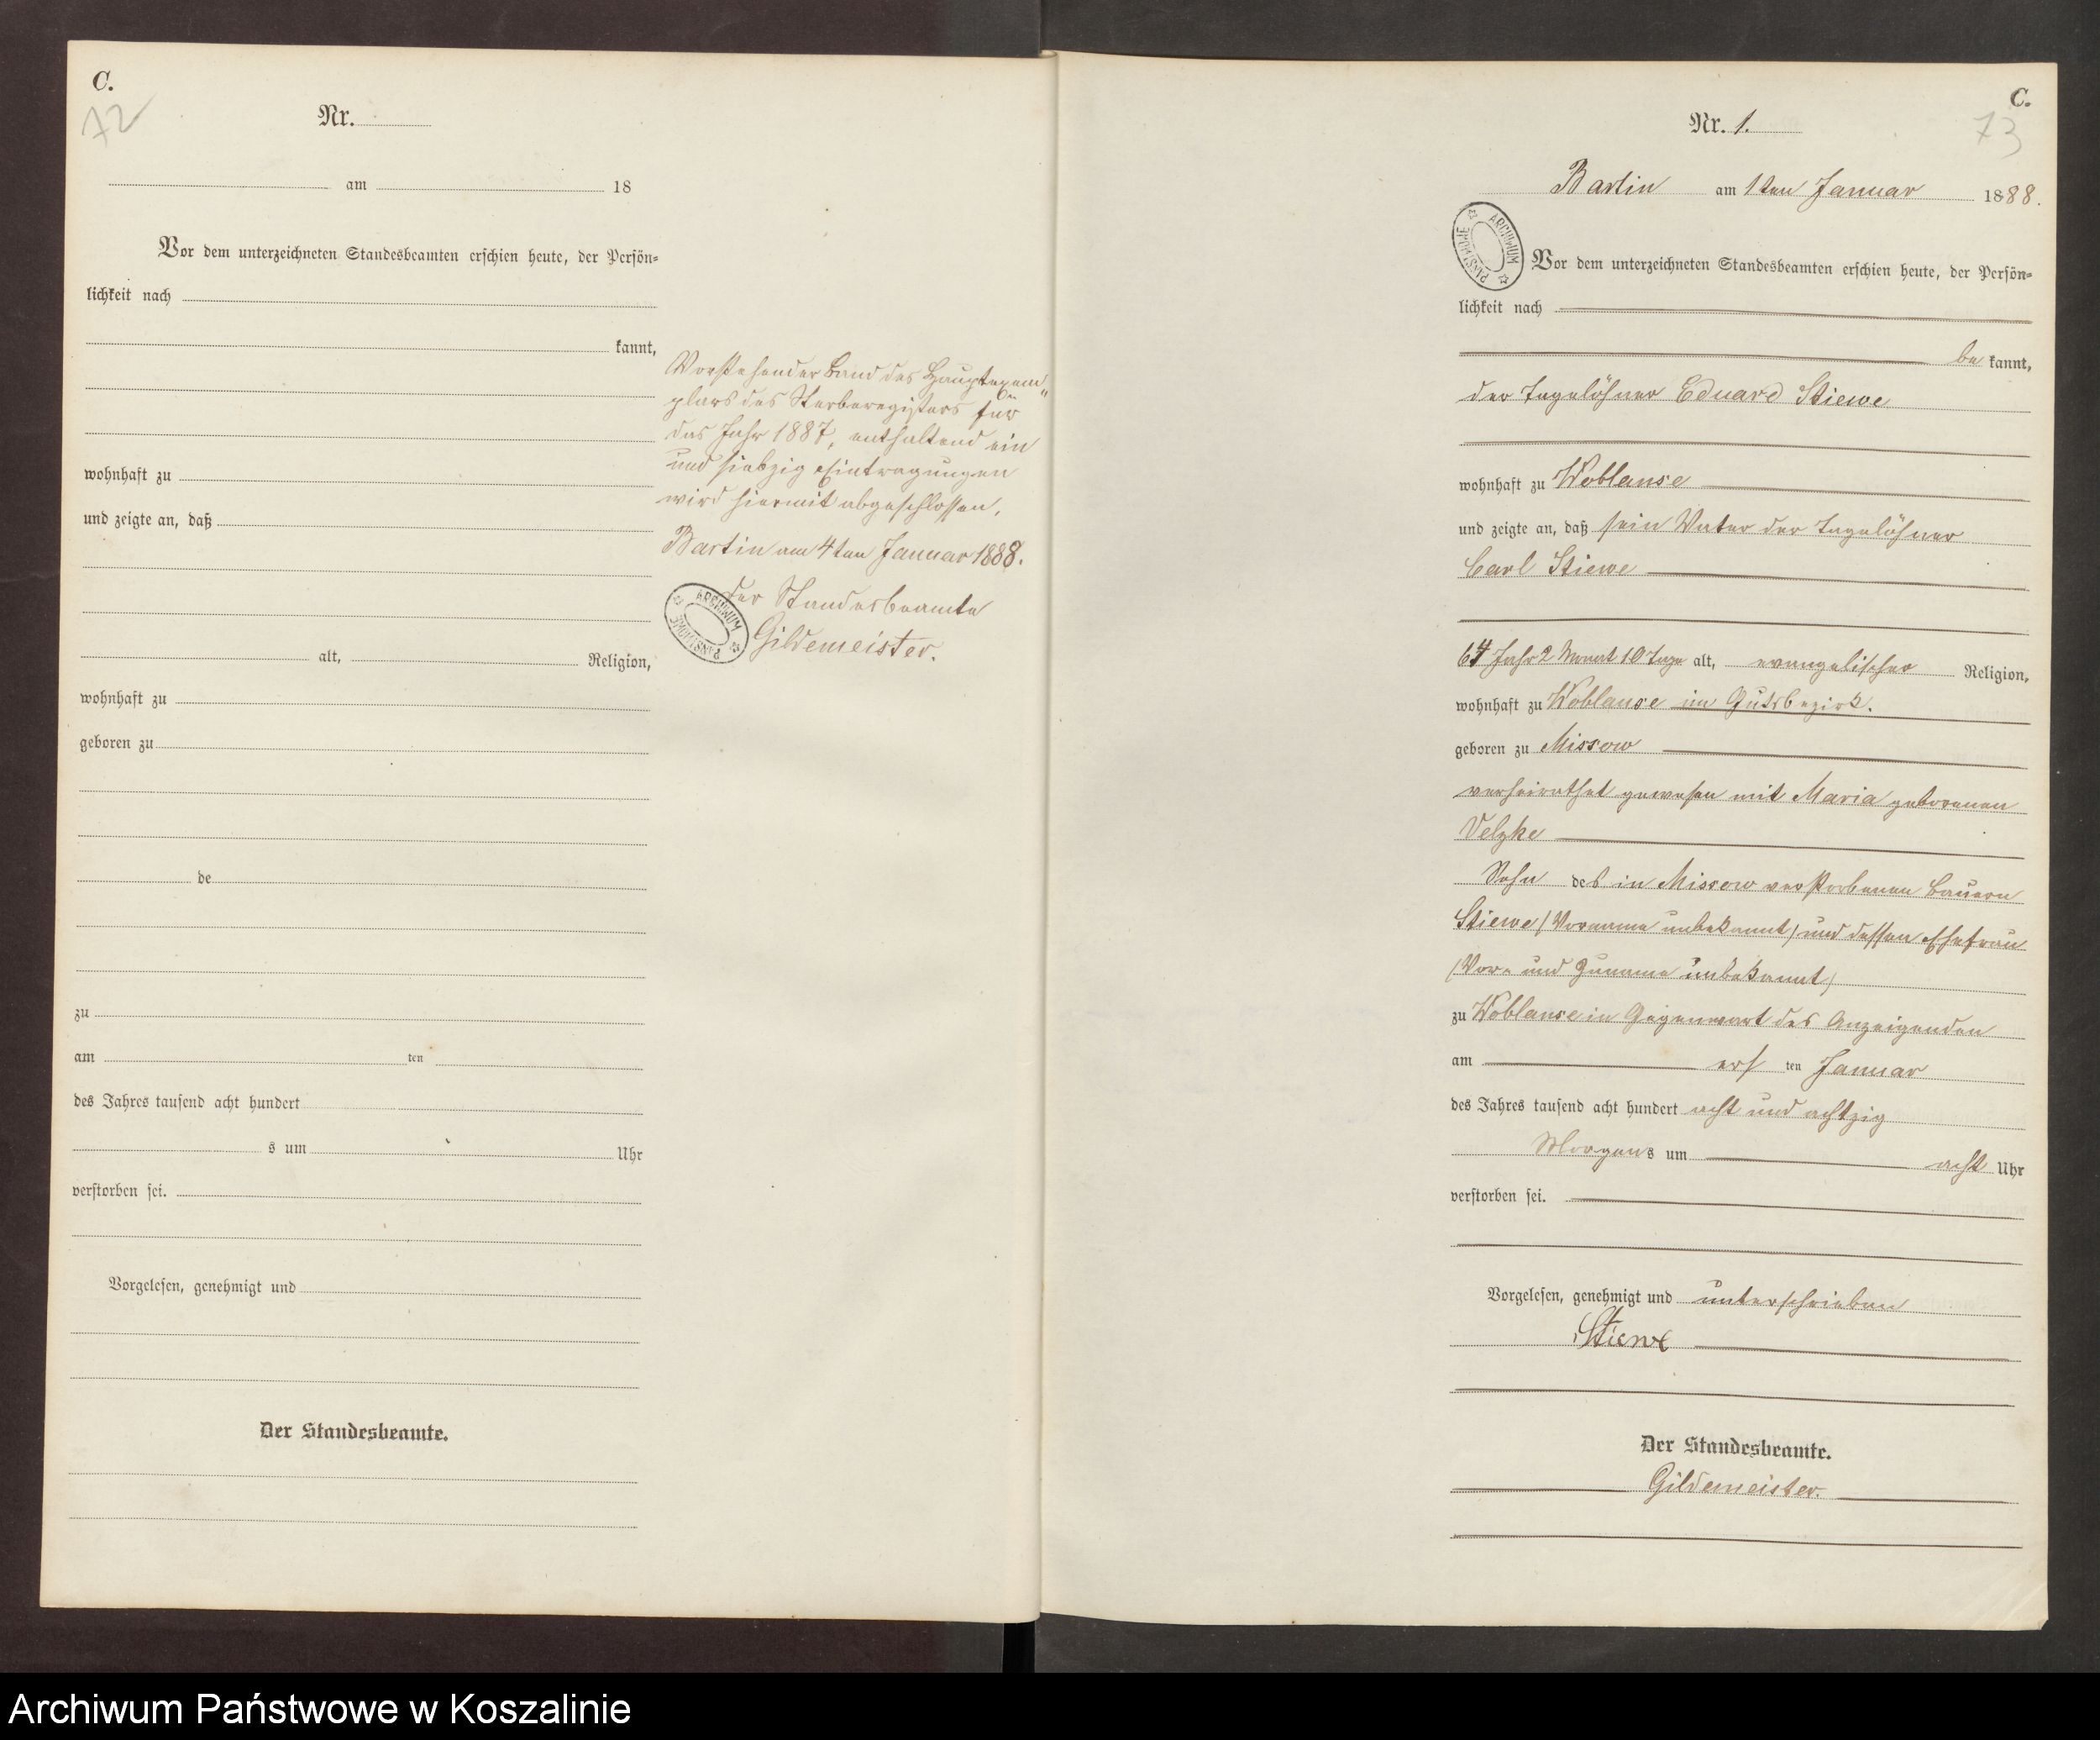 C.
72
Nr.
am 18
Vor dem unterzeichneten Standesbeamten erschien heute, der Persön-
lichkeit nach
kannt,
wohnhaft zu
und zeigte an, daß
alt, Religion,
wohnhaft zu
geboren zu
de
zu
am ten
des Jahres tausend acht hundert
s um Uhr
verstorben sei.
Vorgelesen, genehmigt und
Der Standesbeamte.
Vorstehender Band des Hauptexem-
plars des Sterberegisters für
das Jahr 1887, enthaltend ein
und siebzig Eintragungen
wird hiermit abgeschlossen.
Bartin am 4ten Januar 1888.
Der Standesbeamte
Gildemeister.
ARCHIWUM PAŃSTWOWE
C.
73
Nr. 1.
Bartin am 1ten Januar 1888.
ARCHIWUM PAŃSTWOWE
Vor dem unterzeichneten Standesbeamten erschien heute, der Persön-
lichkeit nach
be kannt,
der Tagelöhner Eduard Stiewe
wohnhaft zu Woblanse
und zeigte an, daß sein Vater der Tagelöhner
Carl Stiewe
64 Jahr 2 Monat 10 Tage alt, evangelischer Religion,
wohnhaft zu Woblanse im Gutsbezirk.
geboren zu Missow
verheirathet gewesen mit Maria geborenen
Velzke
Sohn des in Missow verstorbenen Bauern
Stiewe (Vorname unbekannt) und dessen Ehefrau
(Vor- und Zuname unbekannt)
zu Woblanse in Gegenwart des Anzeigenden
am ers ten Januar
des Jahres tausend acht hundert acht und achtzig
Morgens um acht Uhr
verstorben sei.
Vorgelesen, genehmigt und unterschrieben
Stiewe
Der Standesbeamte.
Gildemeister.
Archiwum Państwowe w Koszalinie